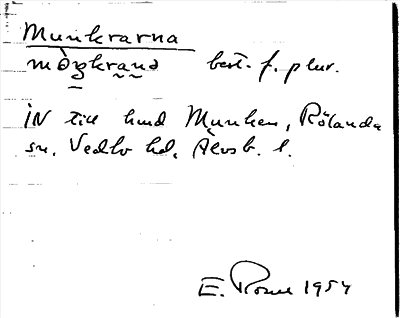 Munkrarna
mòŋkrạṇạ best. f. plur.
IN till hmd Munken, Rölanda
sn, Vedbo hd, Älvsb. l.
E. Rosur 1954